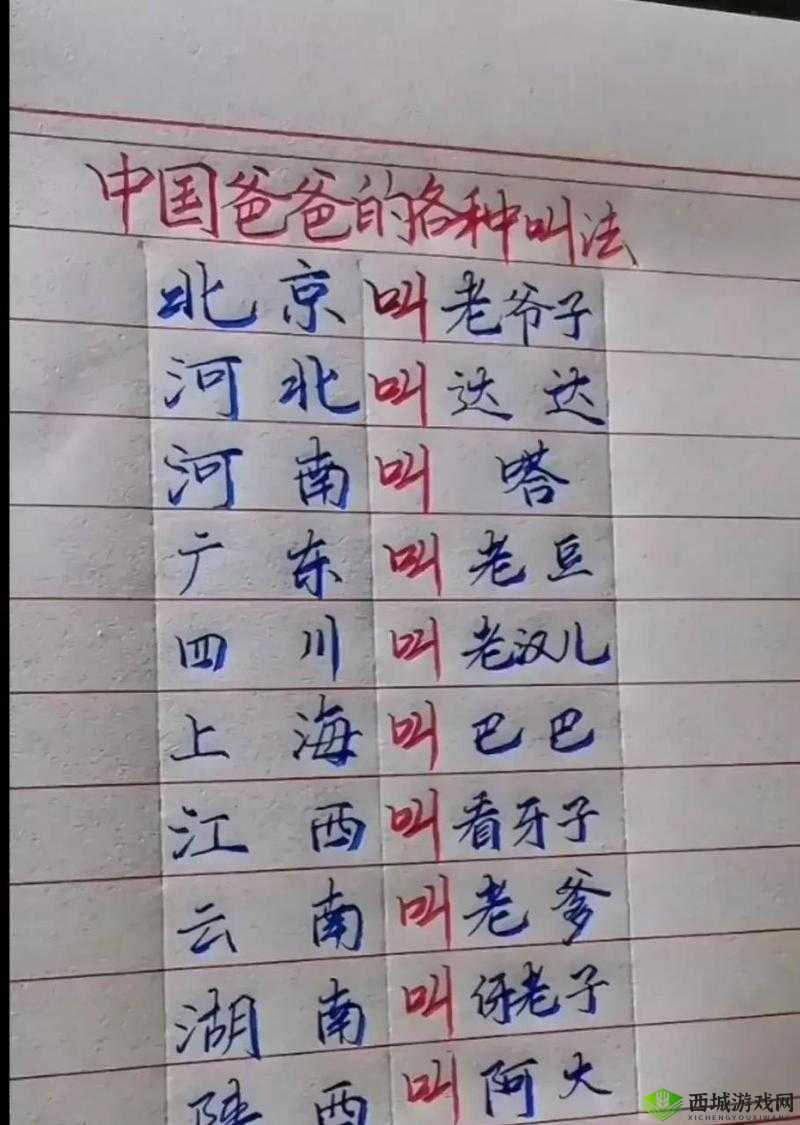 中国爸爸的各种叫法
北京叫老爷子
河北叫达达
河南叫嗒
广东叫老豆
四川叫老汉儿
上海叫巴巴
江西叫看牙子
云南叫老爹
湖南叫伢老子
陕西叫阿大
西城游戏网
XICHENGYOUXIWANG